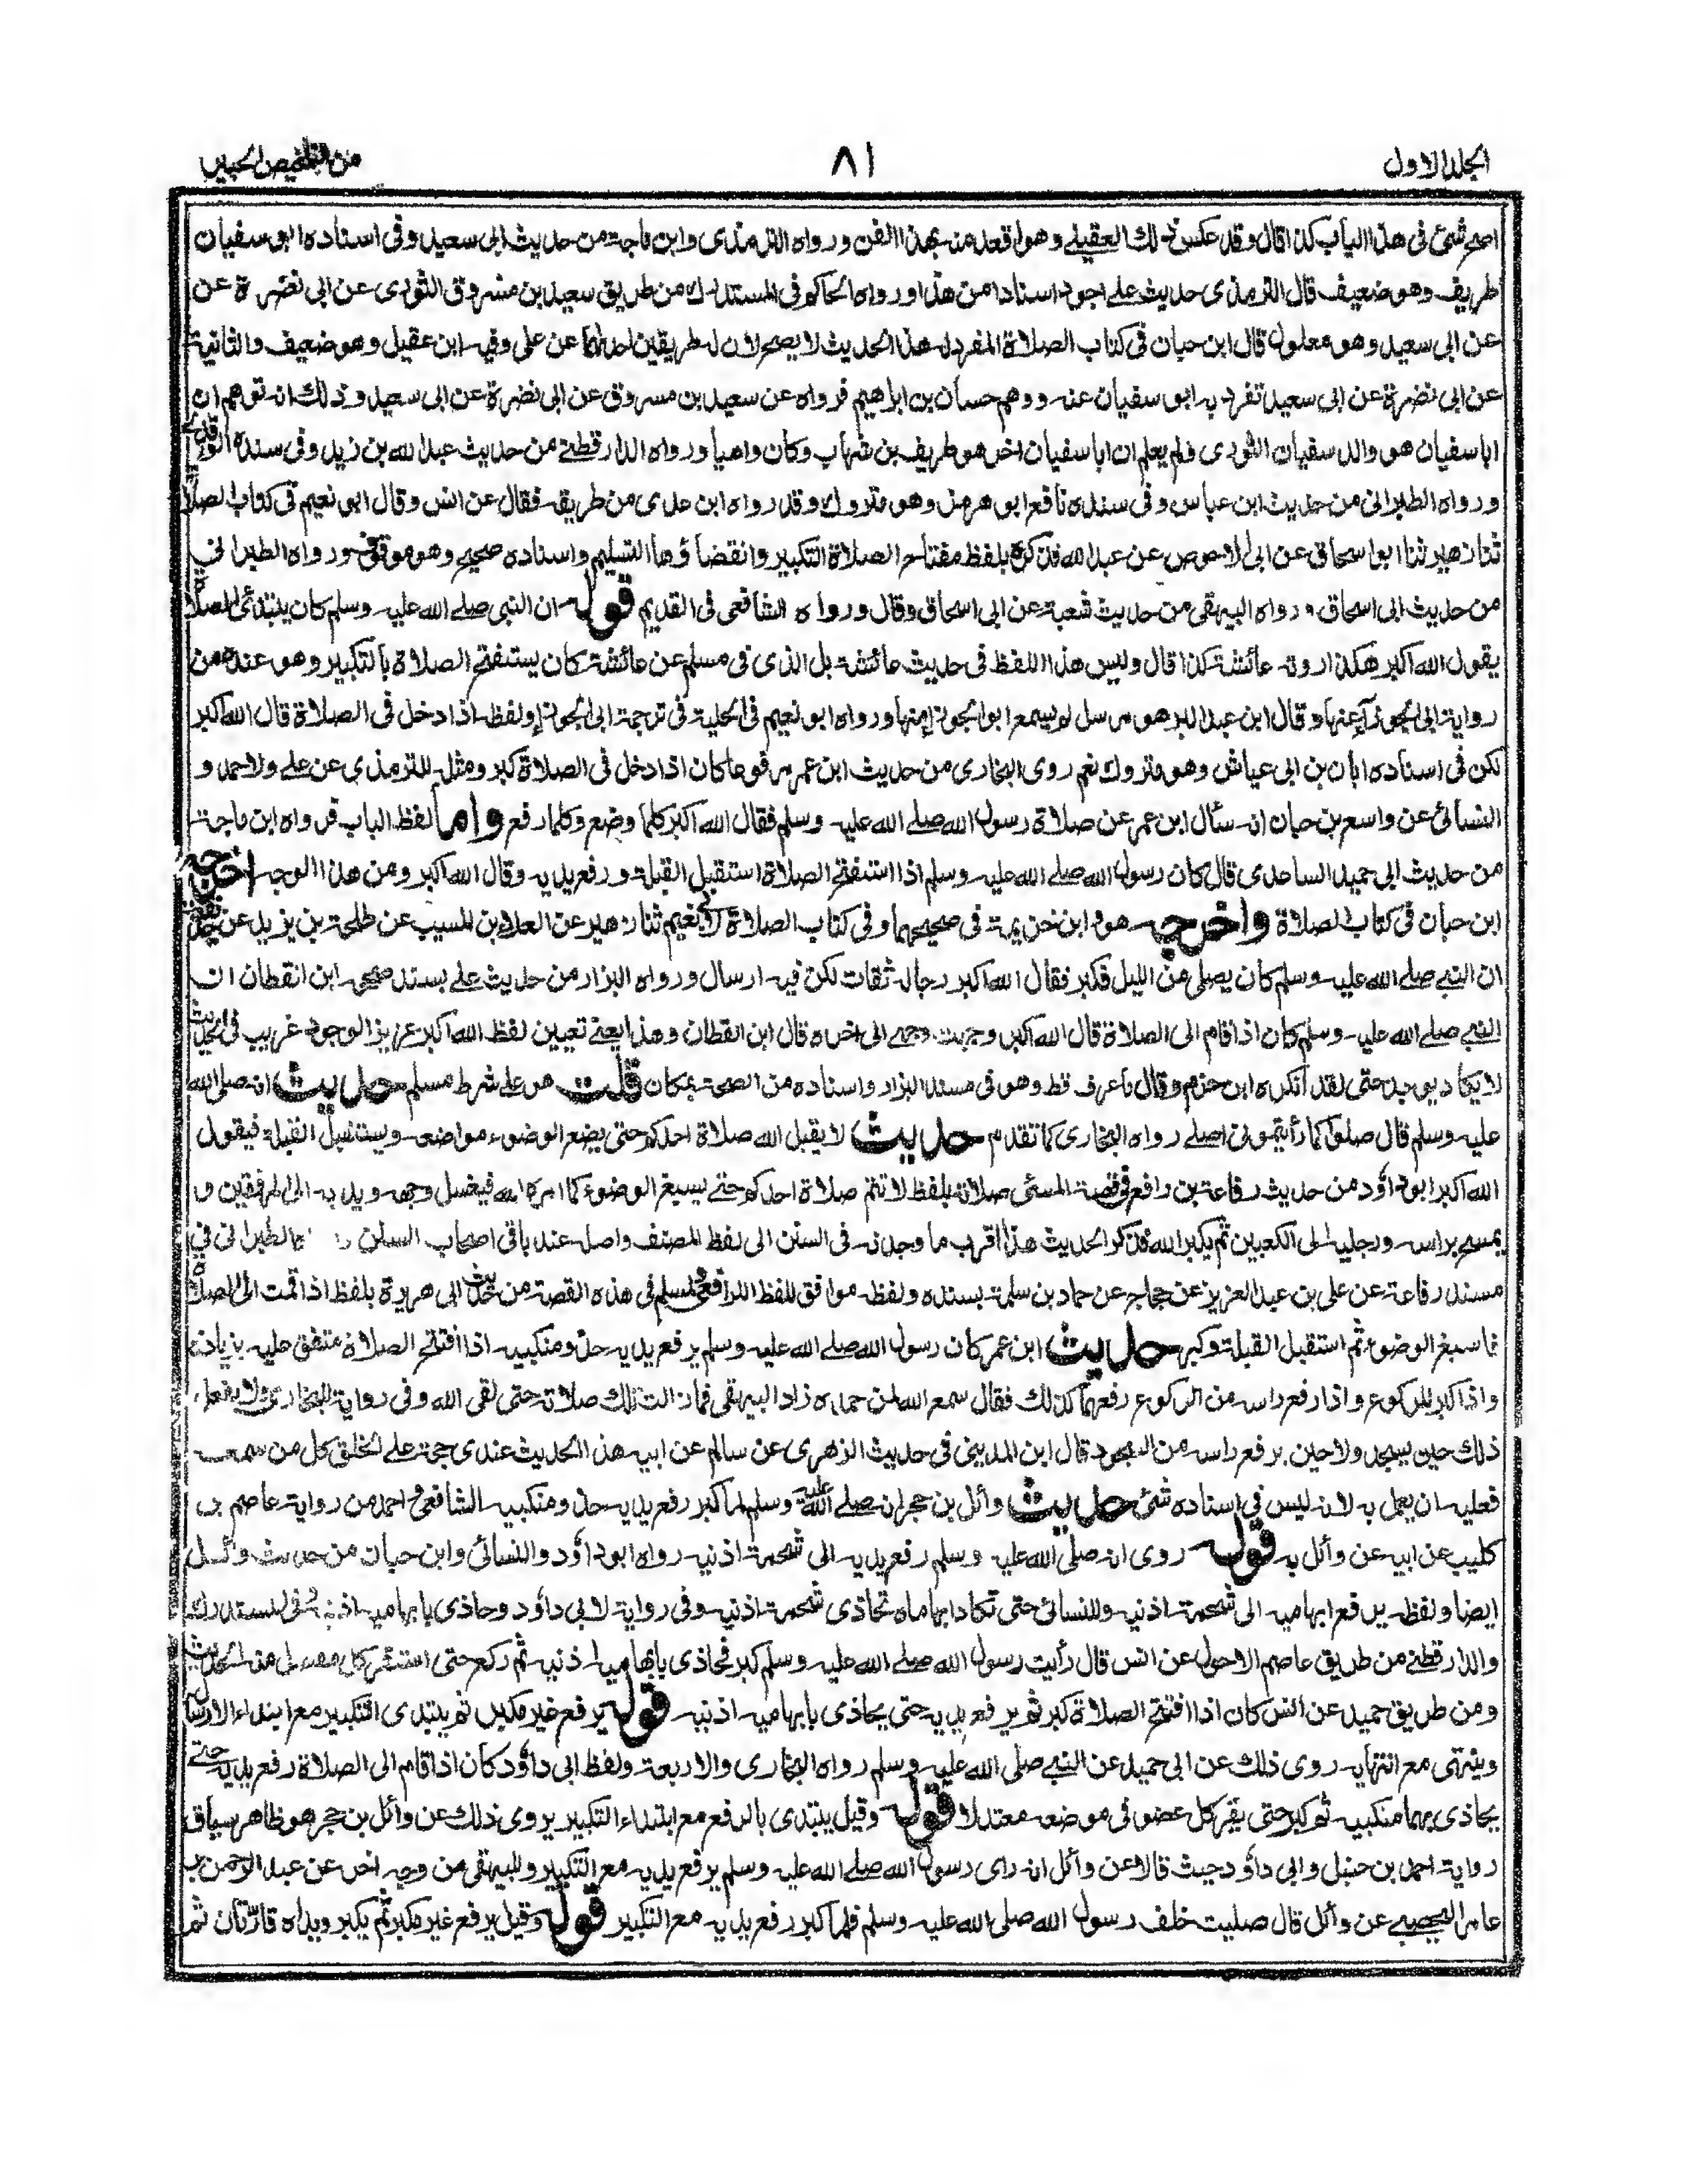 الجلد الاول
٨١
من التلخيص الحبير
اصح شئ فى هذا الباب كذا قال وقد عكس ذلك العقيلے وهو اقعد منه بهذا الفن ورواه الترمذى وابن ماجة من حديث ابى سعيد وفى اسناده ابو سفيان
طريف وهو ضعيف قال الترمذى حديث علے اجود اسنادا من هذا ورواه الحاكم فى المستدرك من طريق سعيد بن مسروق الثورى عن ابى نضرة عن
عن ابى سعيد وهو معلول قال ابن حبان فى كتاب الصلاة المفرد له هذا الحديث لا يصح لان له طريقين احدٰهما عن على وفيه ابن عقيل وهو ضعيف والثانية
عن ابى نضرة عن ابى سعيد تفرد به ابو سفيان عنه ووهم حسان بن ابراهيم فرواه عن سعيد بن مسروق عن ابى نضرة عن ابى سعيد وذلك انه توهم ان
ابا سفيان هو والد سفيان الثورى فلم يعلم ان ابا سفيان اخر هو طريف بن شهاب وكان واهيا ورواه الدارقطنے من حديث عبد الله بن زيد وفى سنده الواقدى
ورواه الطبرانى من حديث ابن عباس وفى سنده نافع ابو هرمز وهو متروك وقد رواه ابن عدى من طريقه فقال عن انس وقال ابو نعيم فى كتاب الصلاة
ثنا زهير ثنا ابو اسحاق عن ابى الاحوص عن عبد الله فذكره بلفظ مفتاح الصلاة التكبير وانقضاؤها التسليم واسناده صحيح وهو موقوف ورواه الطبرانى
من حديث ابى اسحاق ورواه البيهقى من حديث شعبة عن ابى اسحاق وقال ورواه الشافعى فى القديم قوله ان النبى صلے الله عليه وسلم كان يبتدئ الصلاة
يقول الله اكبر هكذا روته عائشة كذا قال وليس هذا اللفظ فى حديث عائشة بل الذى فى مسلم عن عائشة كان يستفتح الصلاة بالتكبير وهو عنده من
رواية ابى الجوزآء عنها وقال ابن عبد البر هو مرسل لم يسمع ابو الجوزاء منها ورواه ابو نعيم فى الحلية فى ترجمة ابى الجوزاء ولفظه اذا دخل فى الصلاة قال الله اكبر
لكن فى اسناده ابان بن ابى عياش وهو متروك نعم روى البخارى من حديث ابن عمر مرفوعا كان اذا دخل فى الصلاة كبر ومثله للترمذى عن علے ولاحمد و
النسائى عن واسع بن حبان انه سأل ابن عمر عن صلاة رسول الله صلے الله عليه وسلم فقال الله اكبر كلما وضع وكلما رفع واما لفظ الباب فرواه ابن ماجة
من حديث ابى حميد الساعدى قال كان رسول الله صلے الله عليه وسلم اذا استفتح الصلاة استقبل القبلة ورفع يديه وقال الله اكبر ومن هذا الوجه اخرجه
ابن حبان فى كتاب الصلاة واخرجه هو وابن خزيمة فى صحيحيهما وفى كتاب الصلاة لابى نعيم ثنا زهير عن العلاء بن المسيب عن طلحة بن يزيد عن حذيفة
ان النبے صلے الله عليه وسلم كان يصلى من الليل فكبر فقال الله اكبر رجاله ثقات لكن فيه ارسال ورواه البزار من حديث علے بسند صححه ابن القطان ان
النبے صلے الله عليه وسلم كان اذا قام الى الصلاة قال الله اكبر وجهت وجهے الى اخره قال ابن القطان وهذا يعنے تعيين لفظ الله اكبر عزيز الوجود غريب فى الحديث
لا يكاد يوجد حتى لقد انكره ابن حزم وقال ما عرف قط وهو فى مسند البزار واسناده من الصحة بمكان قلت هو على شرط مسلم حديث انه صلى الله
عليه وسلم قال صلوا كما رأيتمونى اصلے رواه البخارى كما تقدم حديث لا يقبل الله صلاة احدكم حتى يضع الوضوء مواضعه ويستقبل القبلة فيقول
الله اكبر ابو داؤد من حديث رفاعة بن رافع فى قصة المسئ صلاته بلفظ لا تتم صلاة احدكم حتے يسبغ الوضوء كما امره الله فيغسل وجهه ويديه الى المرفقين و
يمسح براسه ورجليه الى الكعبين ثم يكبر الله فذكر الحديث هذا اقرب ما وجدته فى السنن الى لفظ المصنف واصله عند باقى اصحاب السنن والطبرانى فى
مسند رفاعة عن على بن عبد العزيز عن حجاج عن حماد بن سلمة بسنده ولفظه موافق للفظ الرافعى ولمسلم فى هذه القصة من حديث ابى هريرة بلفظ اذا قمت الى الصلاة
فاسبغ الوضوء ثم استقبل القبلة وكبر حديث ابن عمر كان رسول الله صلے الله عليه وسلم يرفع يديه حذو منكبيه اذا افتتح الصلاة متفق عليه بزيادة
واذا كبر للركوع واذا رفع راسه من الركوع رفعهما كذلك فقال سمع الله لمن حمده زاد البيهقى فما زالت تلك صلاته حتى لقى الله وفى رواية للبخارى ولا يفعل
ذلك حين يسجد ولا حين يرفع راسه من السجود قال ابن المدينى فى حديث الزهرى عن سالم عن ابيه هذا الحديث عندى حجة علے الخلق كل من سمعه
فعليه ان يعمل به لانه ليس فى اسناده شئ حديث وائل بن حجر انه صلے الله عليه وسلم لما كبر رفع يديه حذو منكبيه الشافعى واحمد من رواية عاصم بن
كليب عن ابيه عن وائل به قوله روى انه صلى الله عليه وسلم رفع يديه الى شحمة اذنيه رواه ابو داؤد والنسائى وابن حبان من حديث وائل
ايضا ولفظه يرفع ابهاميه الى شحمة اذنيه وللنسائى حتى تكاد ابهاماه تحاذى شحمة اذنيه وفى رواية لابى داؤد وحاذى بابهاميه اذنيه وفى المستدرك
والدارقطنے من طريق عاصم الاحول عن انس قال رأيت رسول الله صلے الله عليه وسلم كبر فحاذى بابهاميه اذنيه ثم ركع حتى استقر كل مفصل منه الحديث
ومن طريق حميد عن انس كان اذا افتتح الصلاة كبر ثم يرفع يديه حتى يحاذى بابهاميه اذنيه قوله يرفع غير مكبر ثم يبتدى التكبير مع ابتداء الارسال
وينتهى مع انتهايه روى ذلك عن ابى حميد عن النبے صلى الله عليه وسلم رواه البخارى والاربعة ولفظ ابى داؤد كان اذا قام الى الصلاة رفع يديه حتے
يحاذى بهما منكبيه ثم كبر حتى يقر كل عضو فى موضعه معتدلا قوله وقيل يبتدى بالرفع مع ابتداء التكبير يروى ذلك عن وائل بن حجر هو ظاهر سياق
رواية احمد بن حنبل وابى داؤد حيث قالا عن وائل انه راى رسول الله صلے الله عليه وسلم يرفع يديه مع التكبير وللبيهقى من وجه اخر عن عبد الرحمن بن
عامر اليحصبے عن وائل قال صليت خلف رسول الله صلى الله عليه وسلم فلما كبر رفع يديه مع التكبير قوله وقيل يرفع غير مكبر ثم يكبر ويداه قارتان ثم